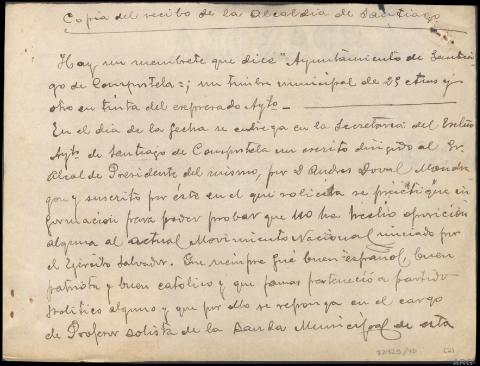 Copia del recibo de la Alcaldía de Santiago.
Hay un membrete que dice "Ayuntamiento de Santia-
go de Compostela=; un timbre municipal de 25 ctms y
otro en tinta del expresado Aytº—
En el dia de la fecha se entrega en la Secretaría del Excmo
Aytº de Santiago de Compostela un escrito dirigido al Sr.
Alcalde Presidente del mismo, por D Andres Doval Mandra-
gon y suscrito por éste en el que solicita se practique in-
formación para poder probar que no ha hecho oposición
alguna al actual Movimiento Nacional iniciado por
el Ejército Salvador. Que siempre fué buen español, buen
patriota y buen catolico y que jamas perteneció a partido
político alguno y que por ello se reponga en el cargo
de Profesor solista de la Banda Municipal de esta
(2)